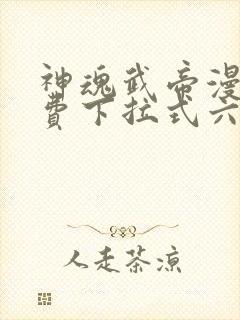 神魂武帝漫
費下拉式六
人走茶涼